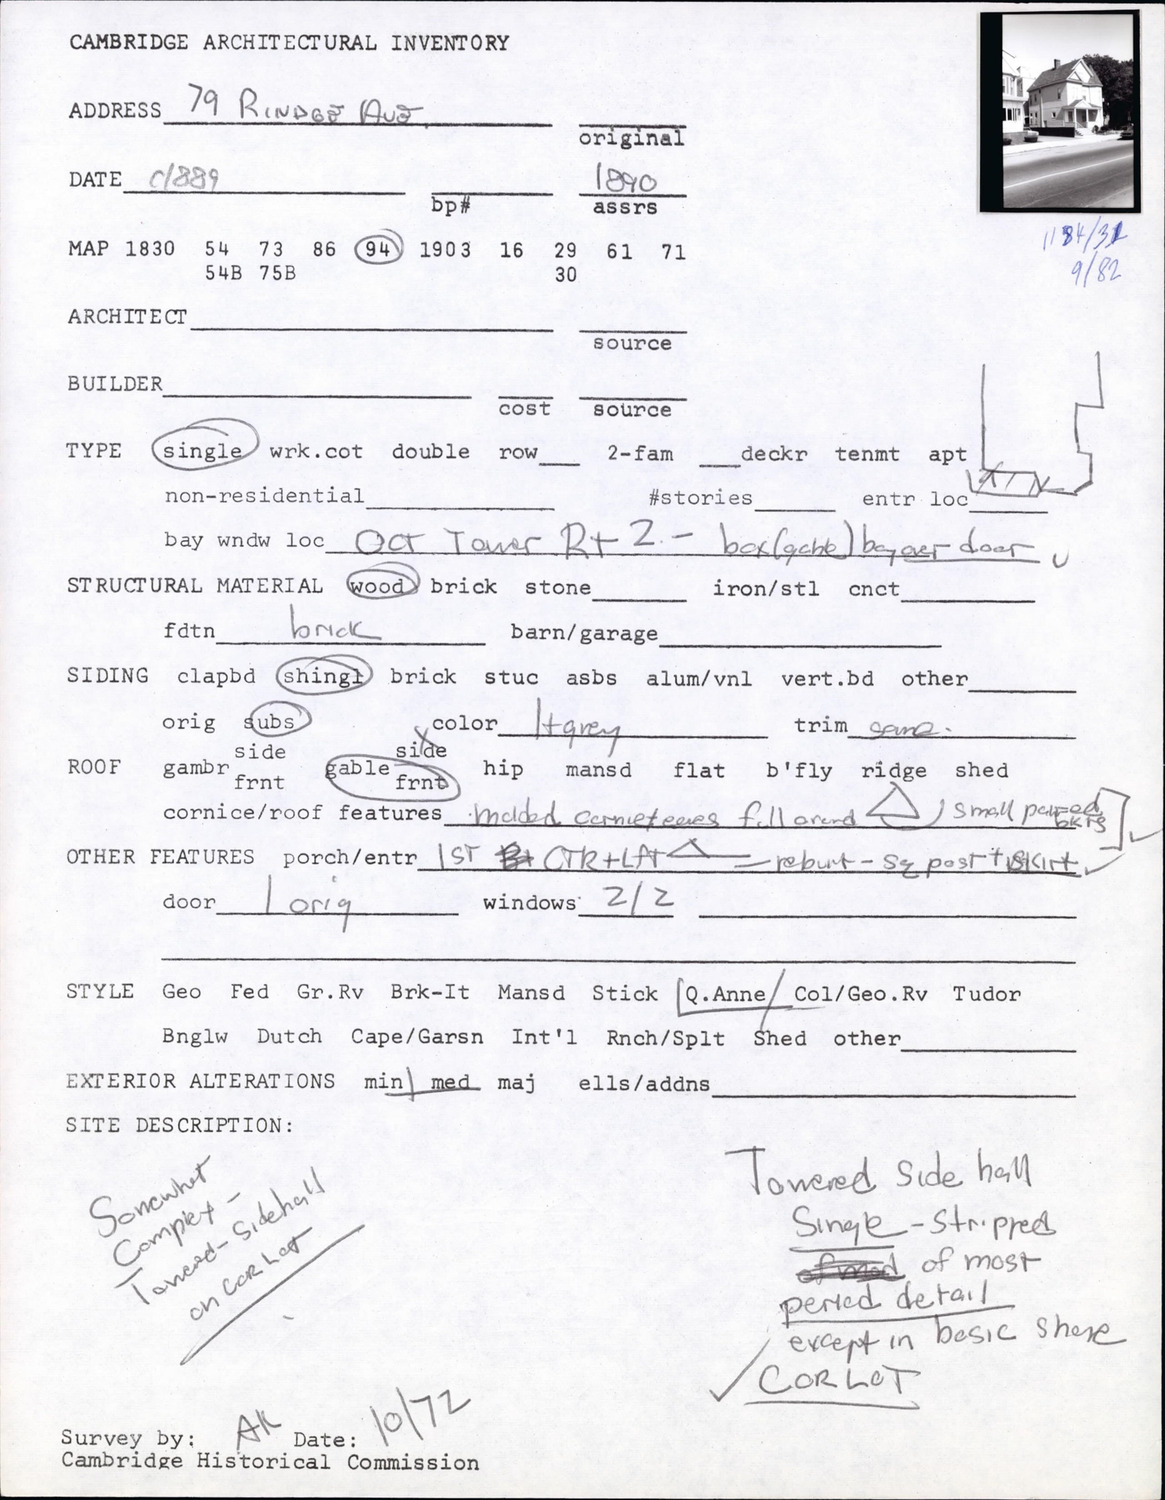 CAMBRIDGE ARCHITECTURAL INVENTORY
ADDRESS 79 RINDGE AVE
original
DATE c1889 1890
bp# assrs
1184/31
9/82
MAP 1830 54 73 86 94 1903 16 29 61 71
54B 75B 30
ARCHITECT
source
BUILDER
cost source
TYPE single wrk.cot double row 2-fam deckr tenmt apt
non-residential #stories entr loc
bay wndw loc Oct Tower Rt 2 - box (gable) bay over door
STRUCTURAL MATERIAL wood brick stone iron/stl cnct
fdtn brick barn/garage
SIDING clapbd shingl brick stuc asbs alum/vnl vert.bd other
orig subs color lt grey trim same.
side side
ROOF gambr gable hip mansd flat b'fly ridge shed
frnt frnt
cornice/roof features molded full around small paired bkts
OTHER FEATURES porch/entr 1ST CTR + LFT - rebuilt - sq post + skirt
door 1 orig windows 2/2
STYLE Geo Fed Gr.Rv Brk-It Mansd Stick Q.Anne Col/Geo.Rv Tudor
Bnglw Dutch Cape/Garsn Int'l Rnch/Splt Shed other
EXTERIOR ALTERATIONS min med maj ells/addns
SITE DESCRIPTION:
Somewhat
Complex -
Towered - Sidehall
on COR LOT
Towered Side hall
Single - Stripped
of most
period detail
except in basic shape
COR LOT
Survey by: AK Date: 10/72
Cambridge Historical Commission